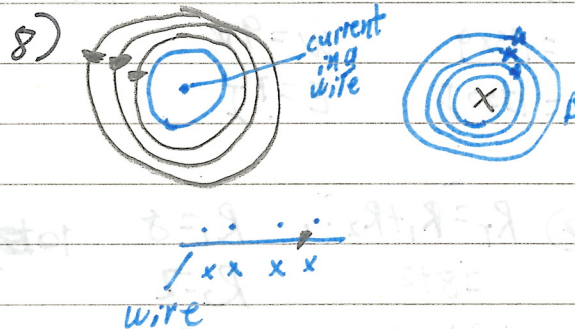 8)
current
in a
wire
X
B
x x x x
wire